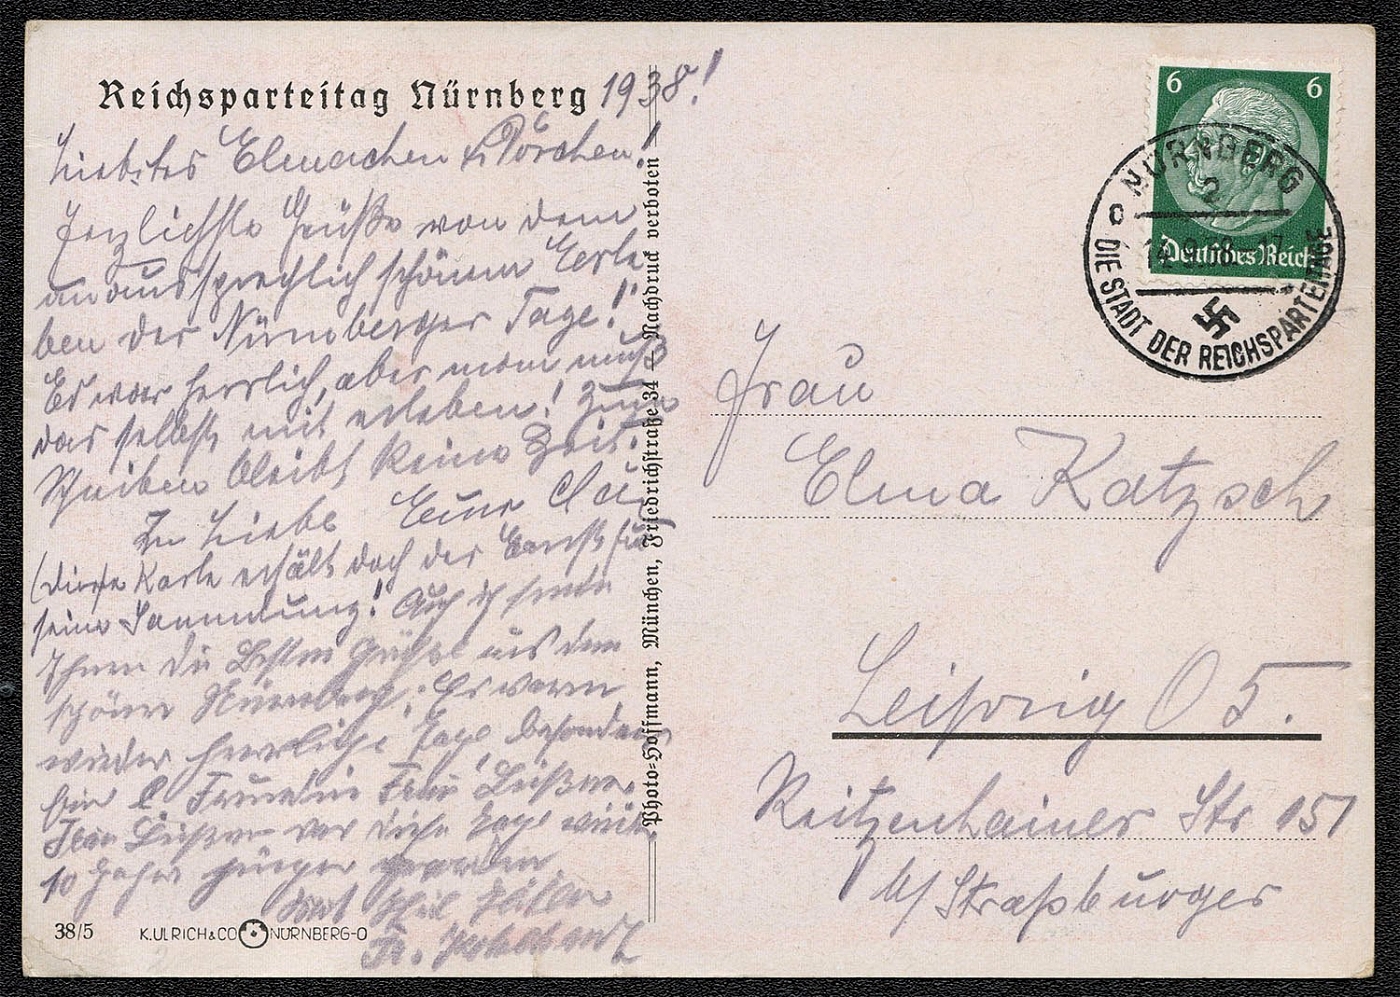 Reichsparteitag Nürnberg 1938!
Liebstes Elmachen & Dörchen!
Herzlichste Grüße von dem
unaussprechlich schönen Erle
ben der Nürnberger Tage!
Es war herrlich, aber man muß
das selbst mit erleben! Zum
Schreiben bleibt keine Zeit.
In Liebe Eure
(Diese Karte erhält doch der Ernst für
seine Sammlung! Auch ich sende
Ihnen die besten Grüße aus dem
schönen Nürnberg. Es waren
wieder herrliche Tage, besonders
Frau
Frau war diese Tage wieder
10 Jahre jünger geworden
Heil Hitler
Fr.
38/5
K.ULRICH&CO NÜRNBERG-O
Photo-Hoffmann, München, Friedrichstraße 34 — Nachdruck verboten
6 6
Deutsches Reich
NÜRNBERG
2
o
DIE STADT DER REICHSPARTEITAGE
Frau
Elma Katzsch
Leipzig O 5.
Reitzenhainer Str 151
b/ Straßburger